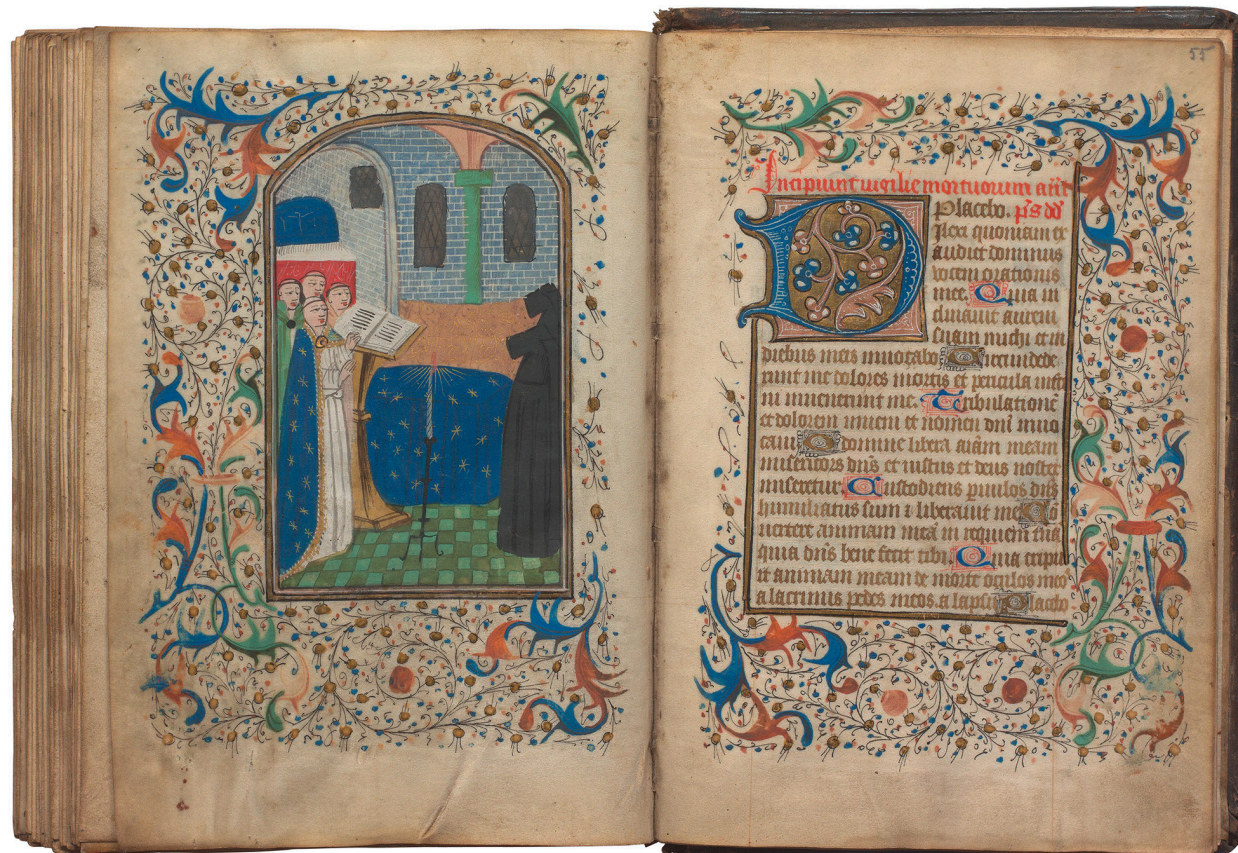 55
Incipiunt vigilie mortuorum añt
Placebo. p̄s dd̄
Ilexi quoniam ex
audiet dominus
vocem orationis
mee. Quia in
clinavit aurem
suam michi et in
diebus meis invocabo Circundede
runt me dolores mortis et pericula inferni
ni invenerunt me. Tribulationē
et dolorem inveni et nomen dn̄i invo
cavi O domine libera aīam meam
misericors dn̄s et iustus et deus noster
miseretur Custodiens pvulos dn̄s
humiliatus sum ⁊ liberavit me Co
vertere animam meā in requiem tuā
quia dn̄s bene fecit tibi Quia eripu
it animam meam de morte oculos meo
a lacrimis pedes meos a lapsu Placebo